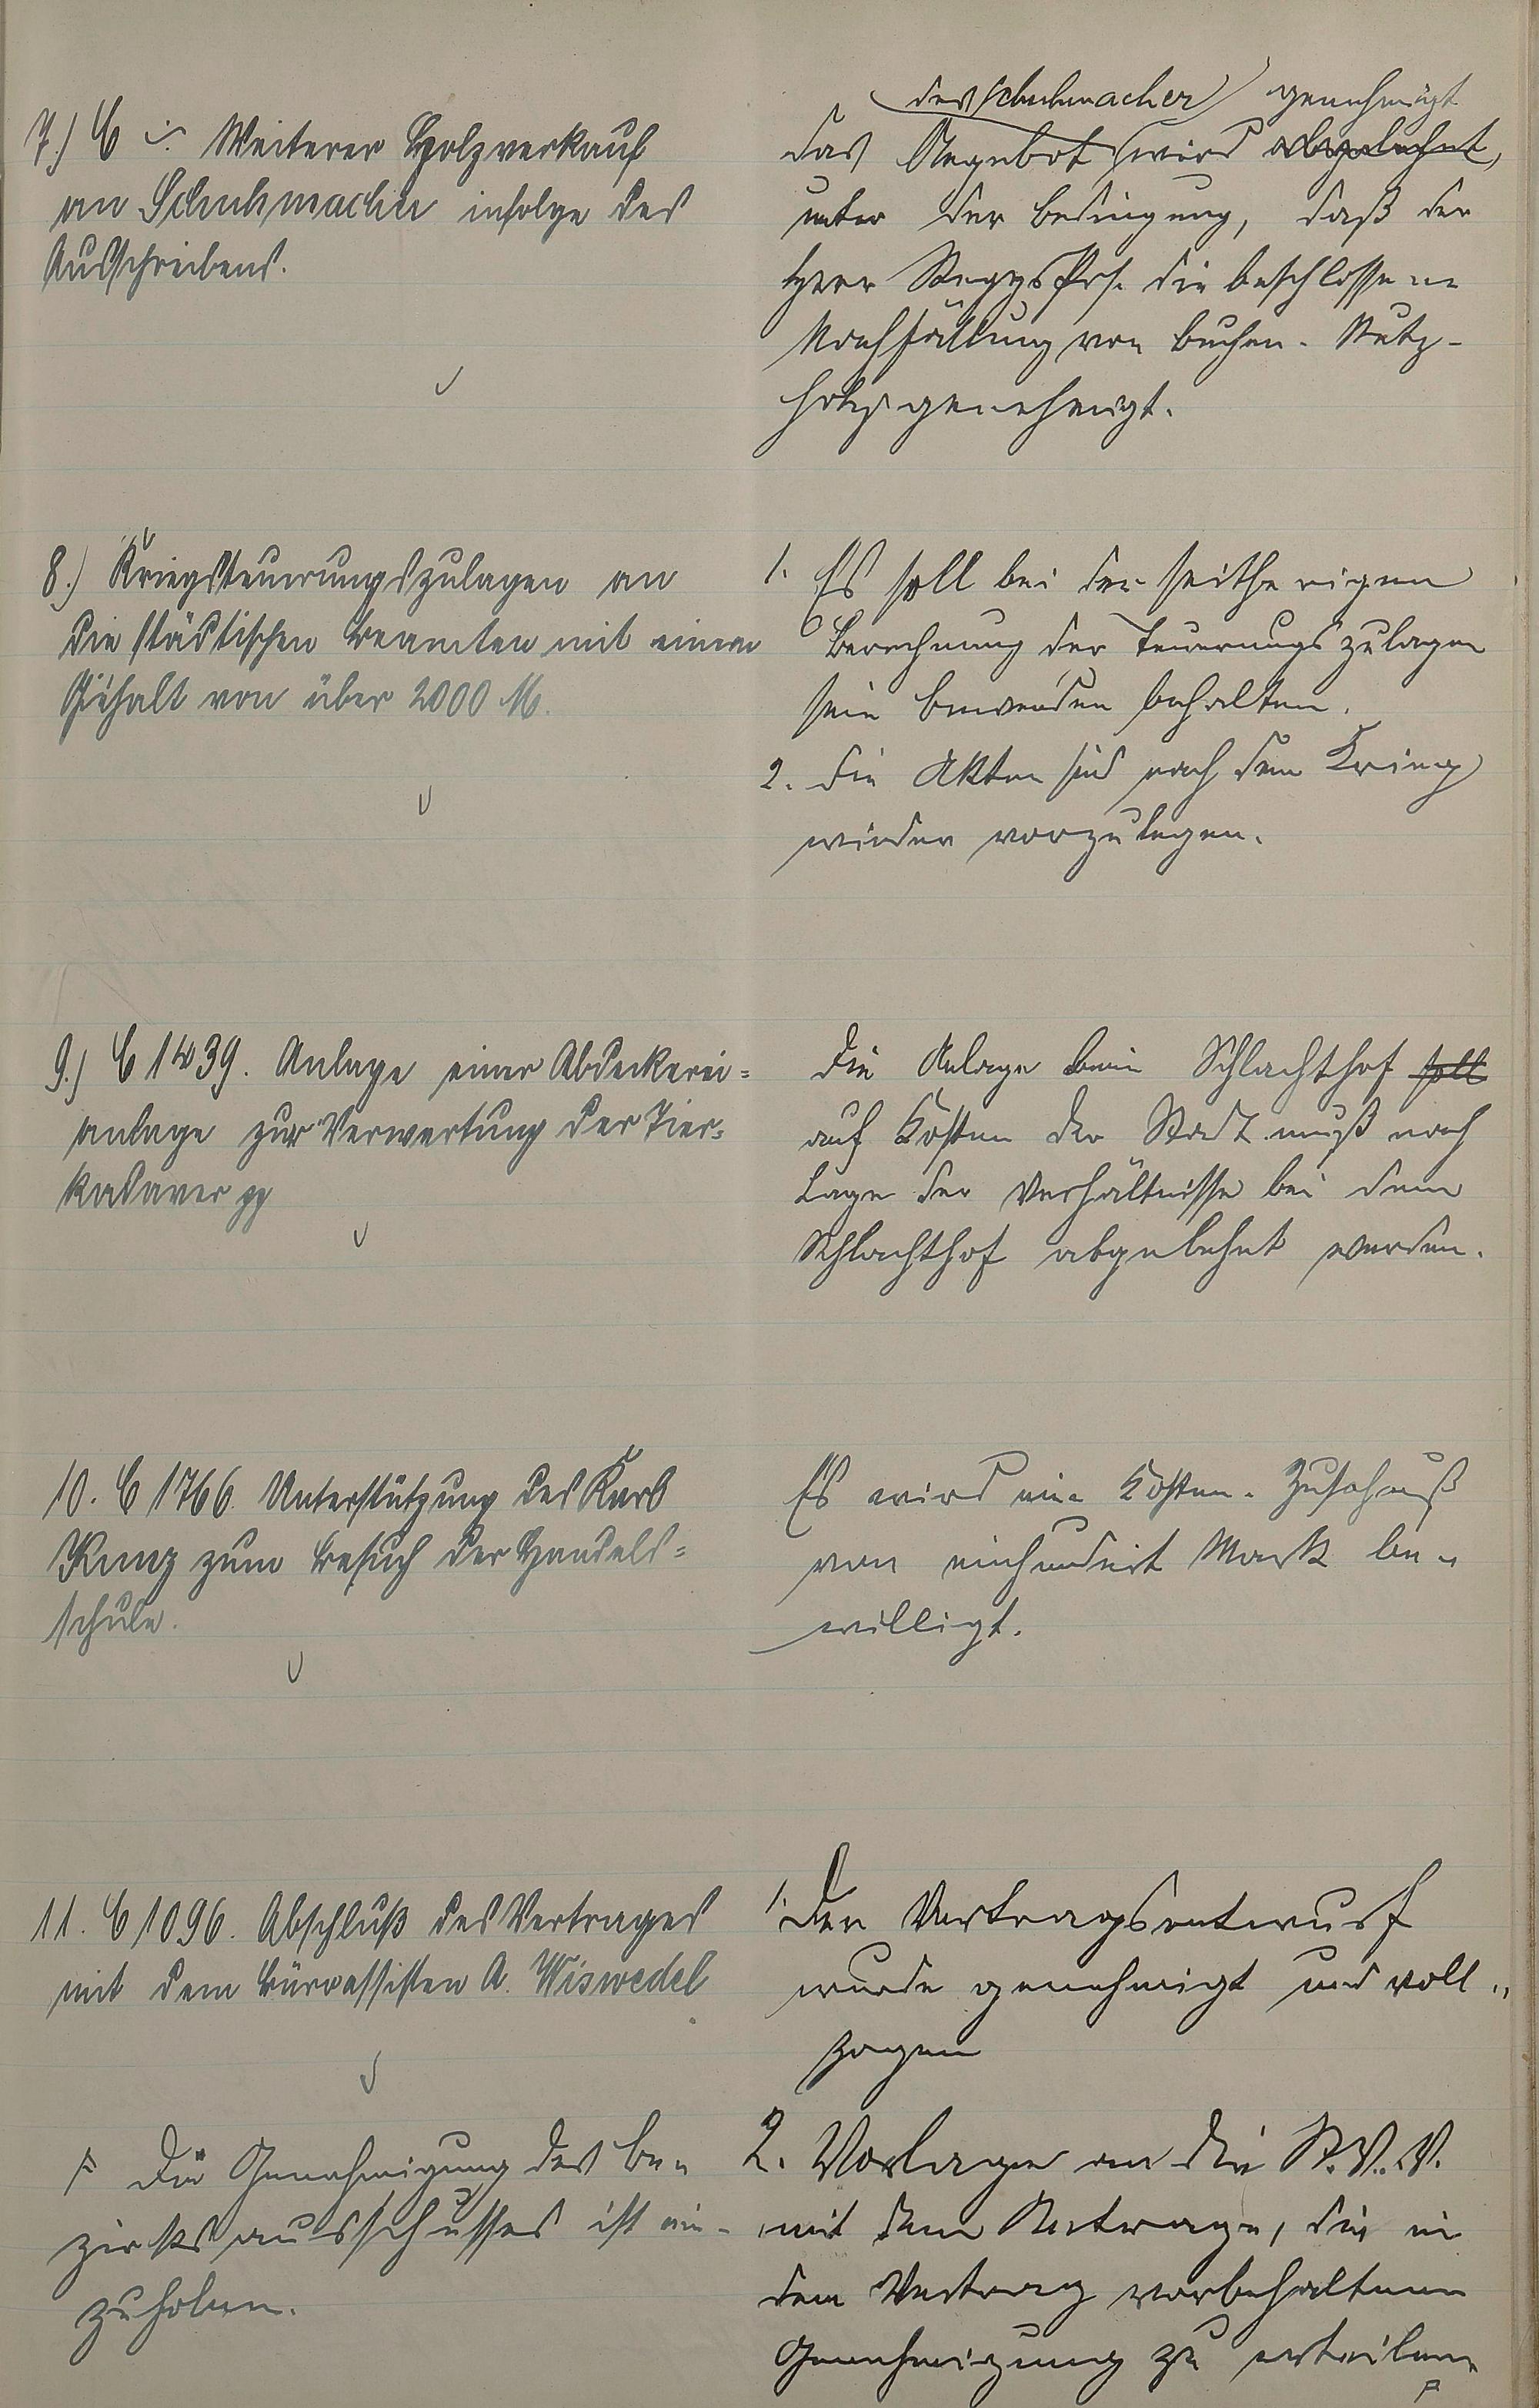 7.) C ∴ Weiterer Holzverkauf
an Schuhmacher infolge des
Ausschreibens.
des Schuhmacher genehmigt
Das Angebot wird abgelehnt,
unter der Bedingung, daß der
Herr ReggsPrs. die beschlossene
Nachfällung von Buchen-Nutz-
holz genehmigt.
8.) Kriegsteuerungszulagen an
die städtischen Beamten mit einem
Gehalt von über 2000 M.
1. Es soll bei der seitherigen
Berechnung der Teuerungszulagen
sein Bewenden behalten.
2. Die Akten sind nach dem Krieg
wieder vorzulegen.
9.) C 1439. Anlage einer Abdeckerei=
anlage zur Verwertung der Tier=
kadaver pp
Die Anlage beim Schlachthof soll
auf Kosten der Stadt muß nach
Lage der Verhältnisse bei dem
Schlachthof abgelehnt werden.
10. C 1766. Unterstützung des Karl
Kunz zum Besuch der Handels=
schule.
Es wird ein Kosten-Zuschuß
von einhundert Mark be-
willigt.
11. C 1096. Abschluß des Vertrages
mit dem Büroassisten A. Wiswedel
1. Der Vertragsentwurf
wurde genehmigt und voll-
zogen
2. Vorlage an die St.V.V.
mit dem Antrage, die in
dem Vertrag vorbehaltenen
Genehmigung zu erteilen
F
F Die Genehmigung des Be-
zirksausschusses ist ein-
zuholen.